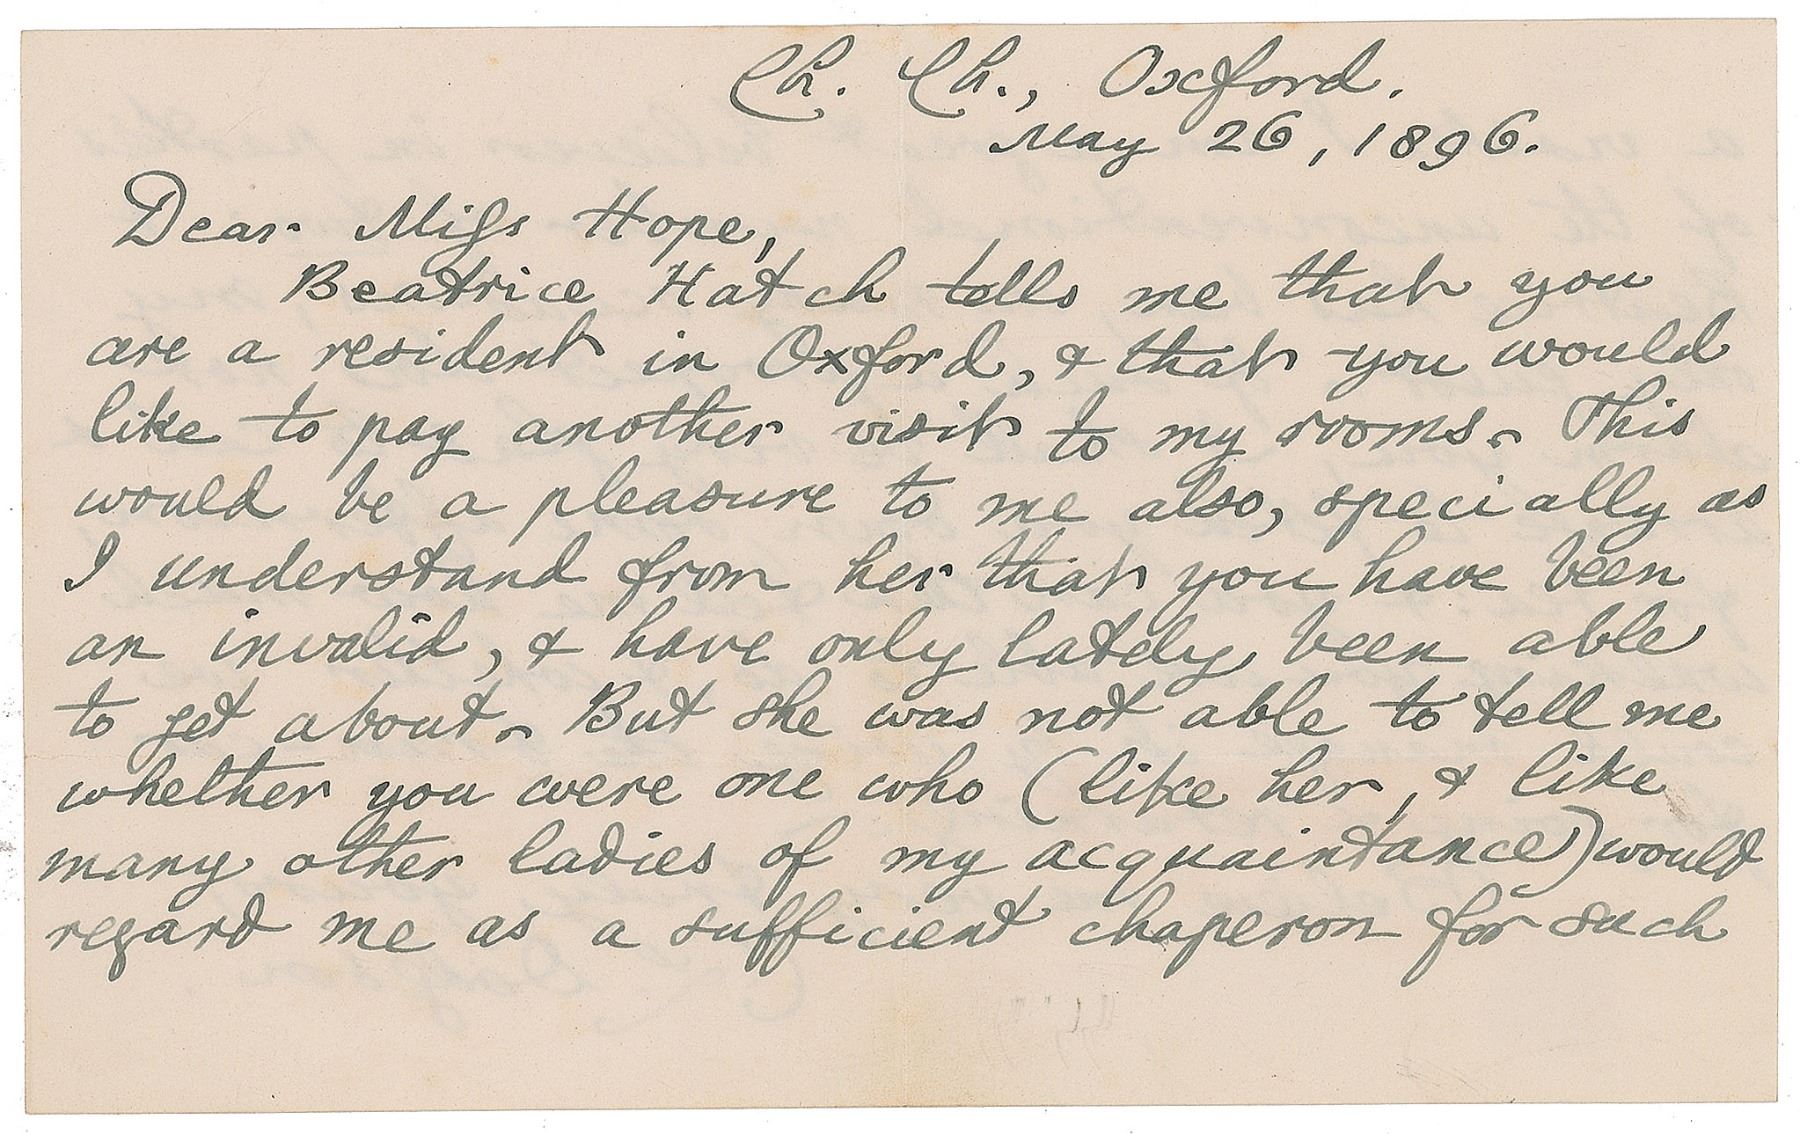 Ch. Ch., Oxford.
May 26, 1896.
Dear Miſs Hope,
Beatrice Hatch tells me that you
are a resident in Oxford, & that you would
like to pay another visit to my rooms. This
would be a pleasure to me also, specially as
I understand from her that you have been
an invalid, & have only lately been able
to get about. But she was not able to tell me
whether you were one who (like her, & like
many other ladies of my acquaintance) would
regard me as a sufficient chaperon for such